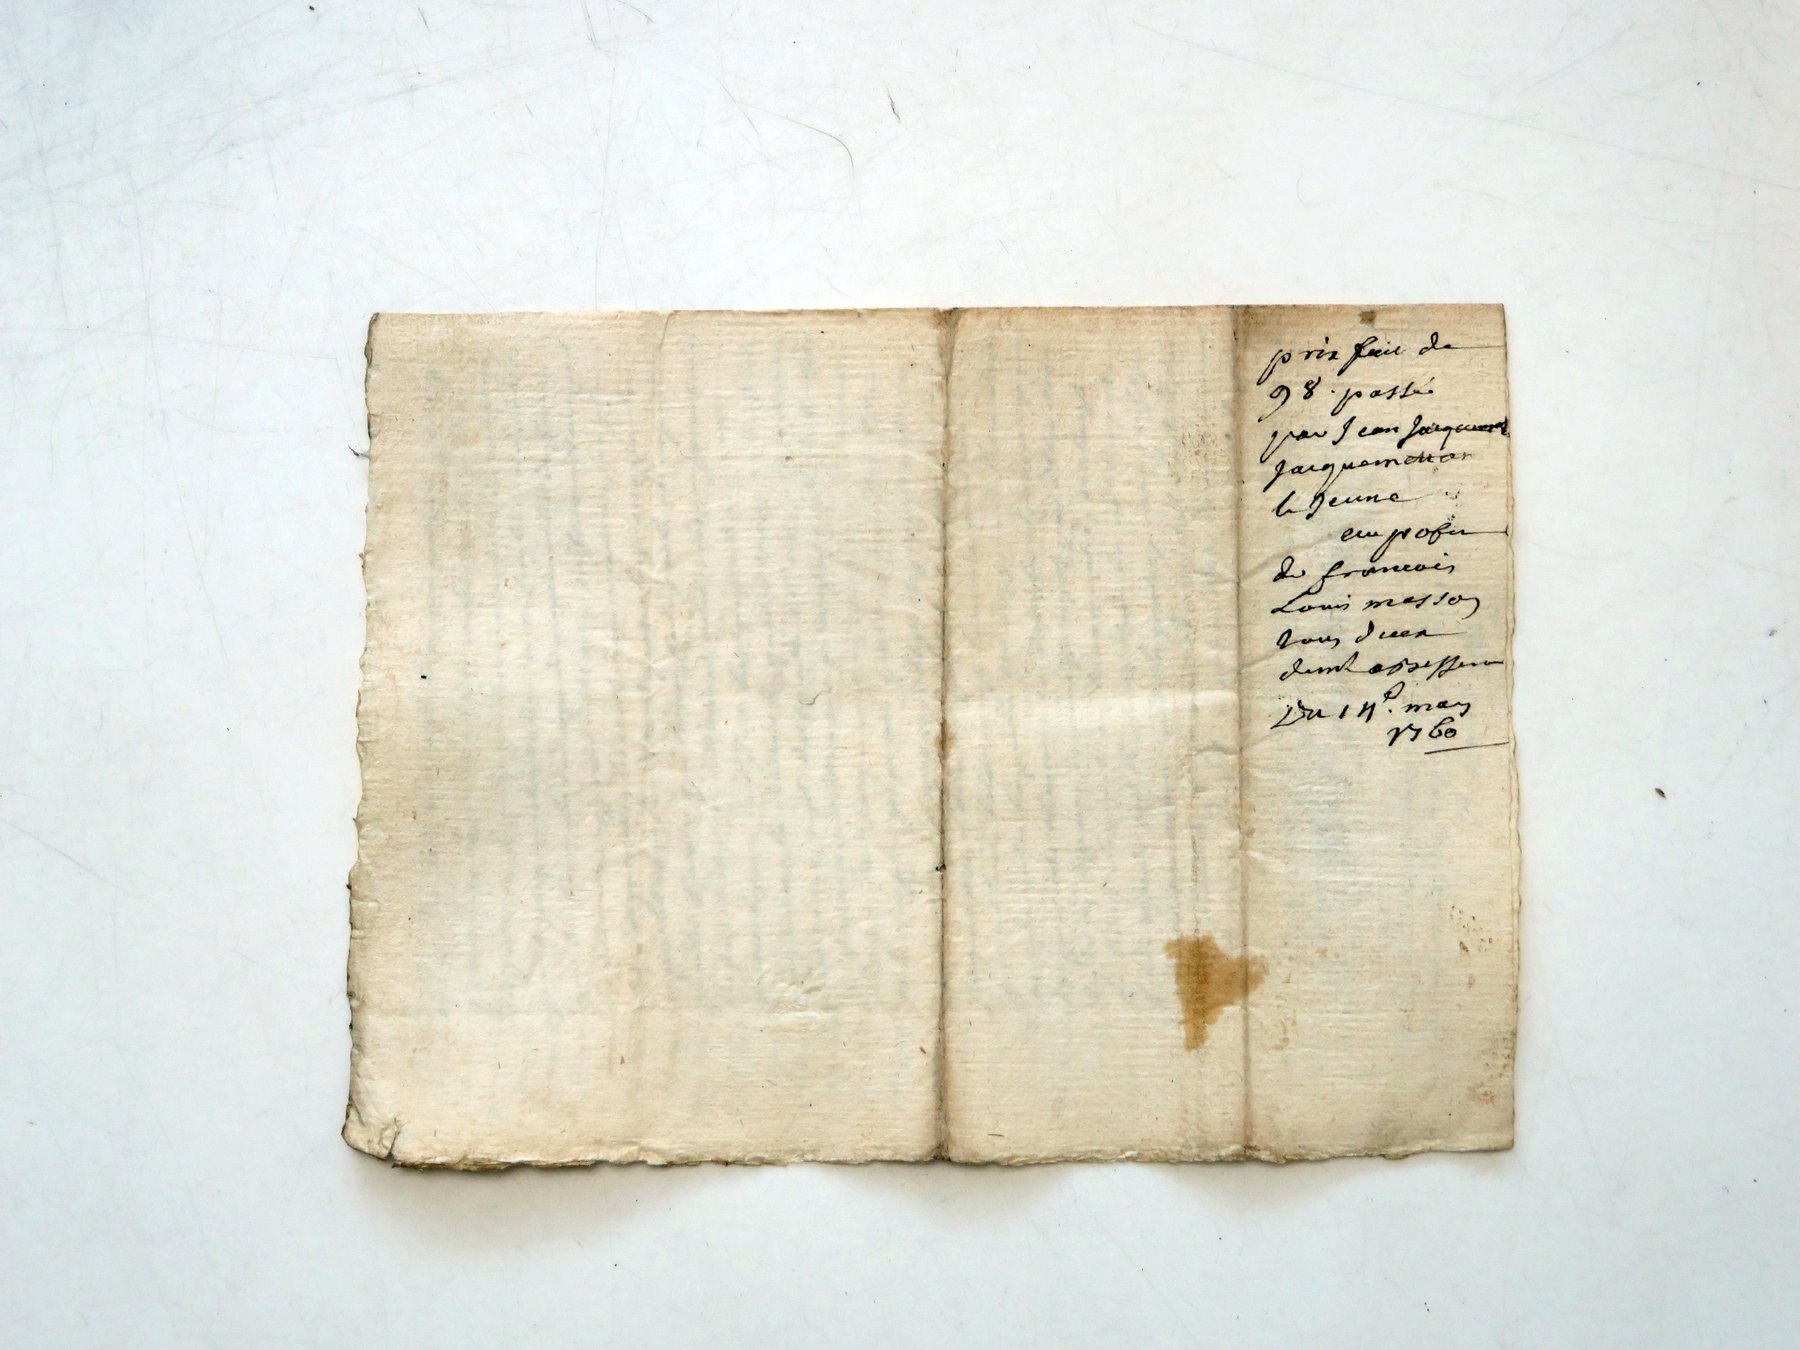 prix fait de
98 passé
par Jean
Jacquemetton
le Jeune
au profit
de francois
Louis masson
tous deux
Du 14e. mars
1760